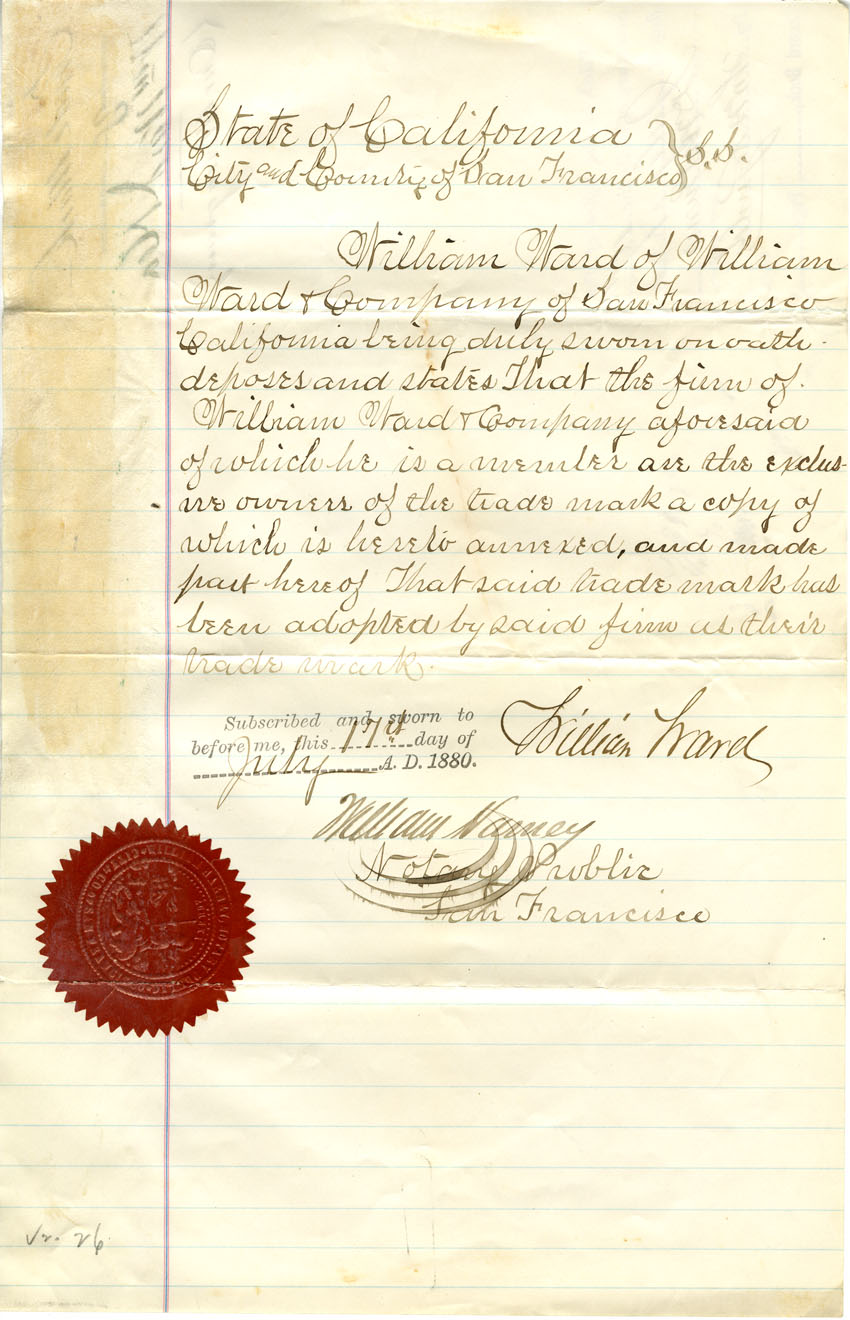 State of California } S.S.
City and County of San Francisco
William Ward of William
Ward & Company of San Francisco
California being duly sworn on oath
deposes and states That the firm of
William Ward & Company aforesaid
of which he is a member are the exclus-
ive owners of the trade mark a copy of
which is hereto annexed, and made
part hereof That said trade mark has
been adopted by said firm as their
trade mark.
Subscribed and sworn to
before me, this 17th day of
July A. D. 1880.
William Ward
William Harney
Notary Public
San Francisco